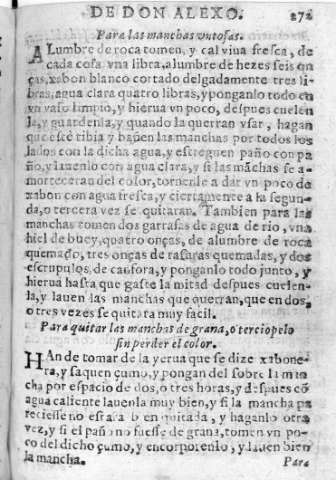 DE DON ALEXO. 272
Para las manchas vntosas.
ALumbre de roca tomen, y cal viua fresca, de
cada cosa vna libra, alumbre de hezes seis on
ças, xabon blanco cortado delgadamente tres li
bras, agua clara quatro libras, y ponganlo todo en
vn vaso limpio, y hierua vn poco, despues cuelen
la, y guardenla, y quando la querran vsar, hagan
que esté tibia y bañen las manchas por todos los
lados con la dicha agua, y estreguen paño con pa
ño, y lauenlo con agua clara, y si las mãchas se a-
morteceran del color, tornenle a dar vn poco de
xabon con agua fresca, y ciertamente a la segun-
da, o tercera vez se quitaran. Tambien para las
manchas tomen dos garrafas de agua de rio, vna
hiel de buey, quatro onças, de alumbre de roca
quemado, tres onças de rasuras quemadas, y dos
escrupulos, de canfora, y ponganlo todo junto, y
hierua hasta que gaste la mitad despues cuelen-
la, y lauen las manchas que querran, que en dos,
o tres vezes se quitara muy facil.
Para quitar las manchas de grana, o terciopelo
sin perder el color.
HAn de tomar de la yerua que se dize xabone-
ra, y saquen çumo, y pongan del sobre la man
cha por espacio de dos, o tres horas, y despues cõ
agua caliente lauenla muy bien, y si la mancha pa
reciesse no estara bien quitada, y haganlo otra
vez, y si el paño no fuesse de grana, tomen vn po-
co del dicho çumo, y encorporenlo, y lauen bien
la mancha. Para